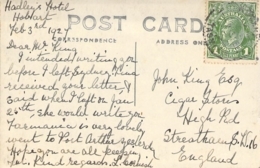 Hadley's Hotel
Hobart
Feb 3rd 1927
POST CARD
CORRESPONDENCE
ADDRESS ONLY
Dear Mr King
I intended writing you
before I left Sydney
received your letter &
said when I left on Jan
26th She would write you
Tasmania is very lovely
went to Port Arthur yesterday
Hope you are all keeping
Kind regards
John King Esq.
Cigar Stores
High Rd
Streatham S.W.16
England